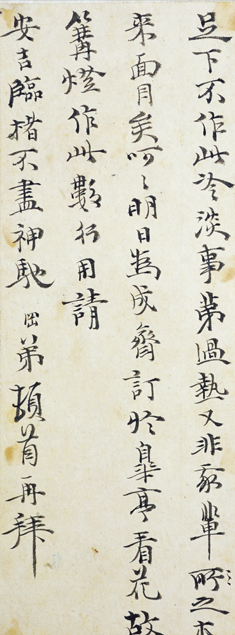 足下不作此冷淡事第過熱又非吾輩所之本
來面目矣呵々明日為成齋訂於皋亭看花故
篝燈作此數行用請
安吉臨楮不盡神馳 弟頓首再拜